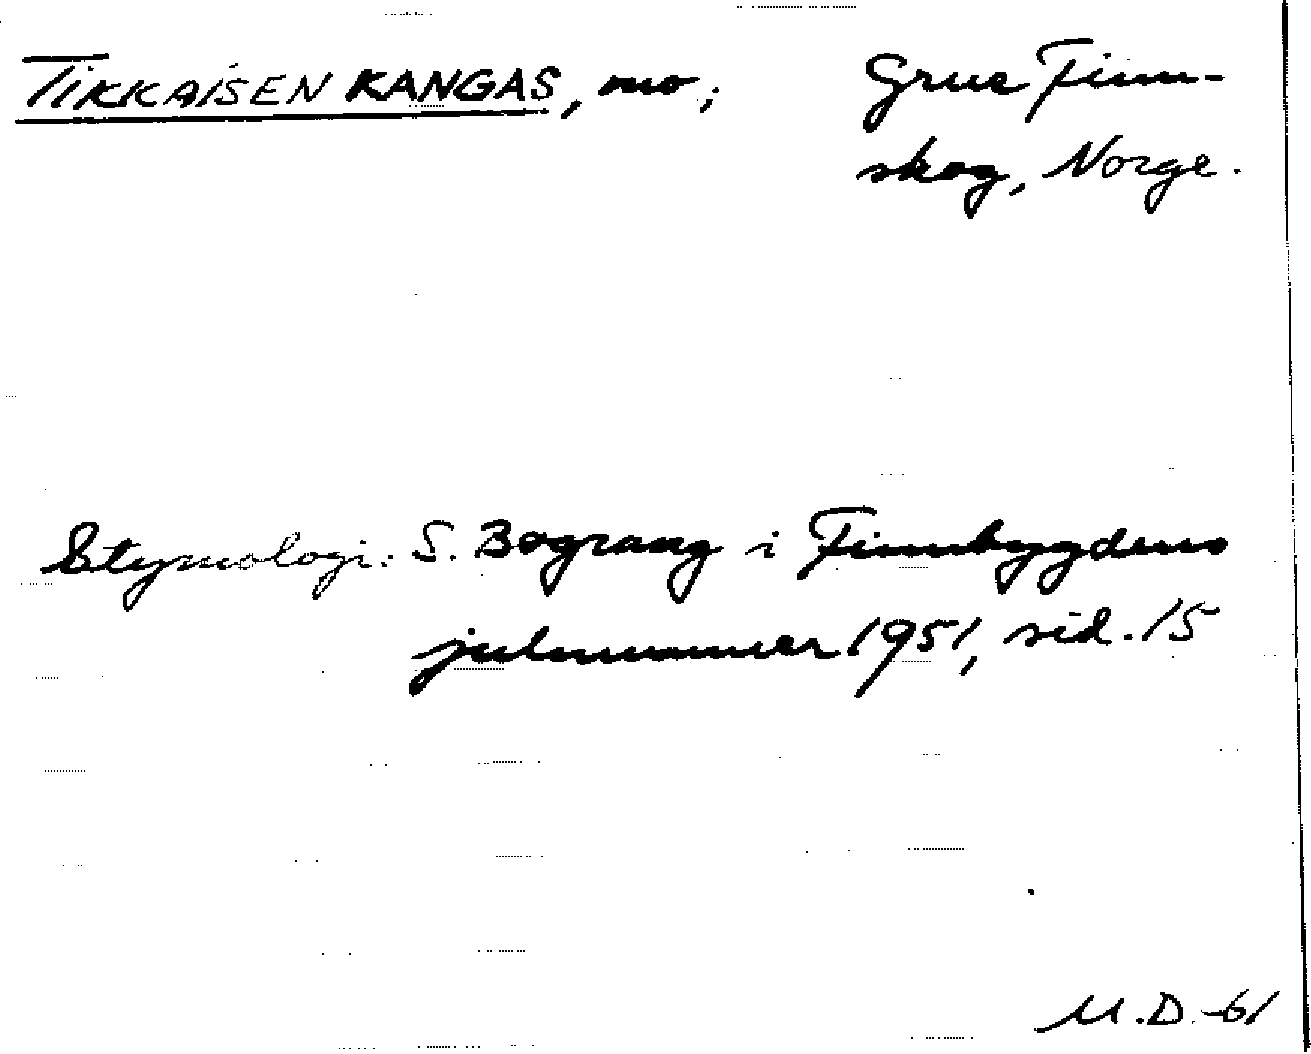 TIKKAISEN KANGAS, mo; Grue Finn-
skog, Norge.
Etymologi: S. Bograng i Finnbygdens
julnummer 1951, sid. 15
M.D. -61